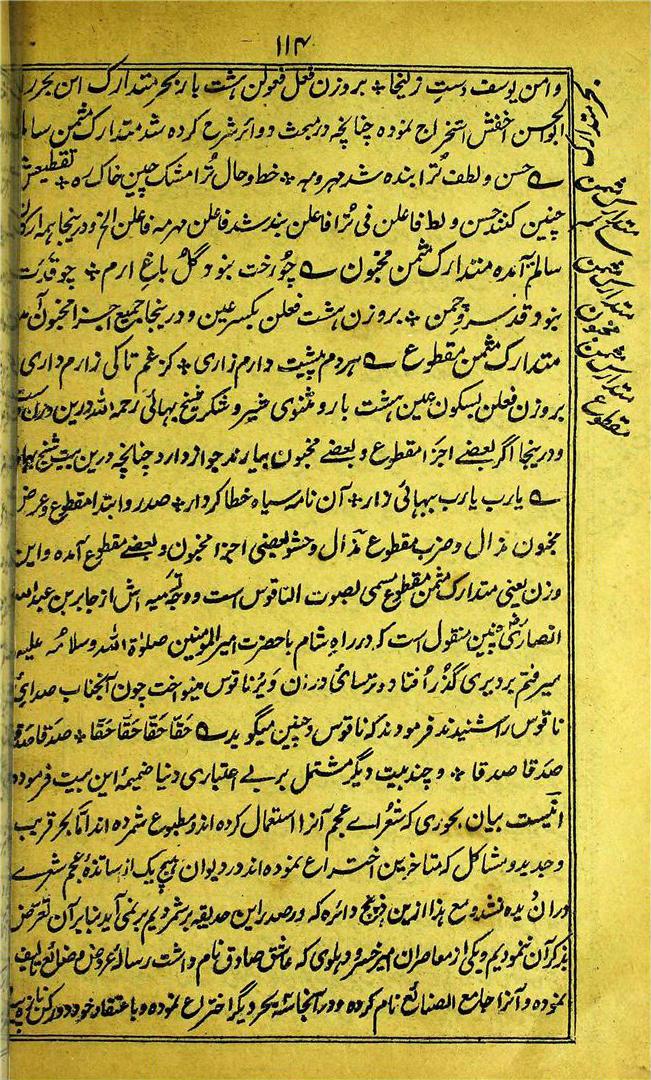 ۱۱۴
و امن یوسف دست زلیخا * بروزن فعل فعولن هشت بار بحر متدارک این بحر را
ابوالحسن اخفش استخراج نموده چنانچه در مبحث دوائر شرح کرده شد متدارک مثمن سالم
حسن و لطف ترا بنده شد مهر و مه * خط و خال ترا مشک چین خاک ره * تقطیعش
چنین کنند حسن و لط فاعلن فی ترا فاعلن بنده شد فاعلن مهر مه فاعلن الخ و درینجا همه ارکان
سالم آمده متدارک مثمن مخبون چو رخت نبود گل باغ ارم * چو قدت
نبود قد سرو چمن * بروزن هشت فعلن بکسر عین و درینجا جمیع اجزا مخبون آمد
متدارک مثمن مقطوع هر دم پیشت دارم زاری * کز غم تا کی زارم داری
بروزن فعلن بسکون عین هشت بار و مثنوی شیر و شکر شیخ بهائی رحمه الله درین وزن است
و درینجا اگر بعضے اجزا مقطوع و بعضے مخبون بیارند جواز دارد چنانچه درین بیت شیخ بهائی
یارب یارب ببهائی زار * آن نامه سیاه خطا کردار * صدر و ابتدا مقطوع و عروض
مخبون مذال و ضرب مقطوع مذال و حشو یعنی اجزا مخبون و بعضے مقطوع آمده و این
وزن یعنی متدارک مثمن مقطوع مسمی بصوت الناقوس است و وجه تسمیه اش از جابر بن عبدالله
انصاری چنین منقول است که در راه شام با حضرت امیر المؤمنین صلوة الله و سلامه علیه
میرفتم بر دیری گذر افتاد و ترسائی در آن دیر ناقوس مینواخت چون آنجناب صدای
ناقوس را شنیدند فرمودند که ناقوس چنین میگوید حقّا حقّا حقّا حقّا * صدقا صدقا
صدقا صدقا * و چند بیت دیگر مشتمل بر بے اعتباری دنیا ضمیمۀ این بیت فرموده
اینست بیان بحوری که شعراے عجم آنرا استعمال کرده اند و مطبوع شمرده اند اما بحر قریب
و جدید و مشاکل که متاخرین اختراع نموده اند در دیوان هیچ یک از اساتذۀ عجم شعرے
دران دیده نشد و مع هذا ازین پنج دائره که در صدر این حدیقه بر شمردیم بر نمی آید بنابر آن تعرض
بذکر آن ننمودیم و یکی از معاصران امیر خسرو دهلوی که عاشق صادق نام داشت رسالۀ عروض و صنائع تالیف
نموده و آنرا جامع الصنائع نام کرده و در آنجا سه بحر دیگر اختراع نموده و باعتقاد خود دو رکن تازه
بحر متدارک
متدارک مثمن سالم
متدارک مثمن مخبون
متدارک مثمن مقطوع